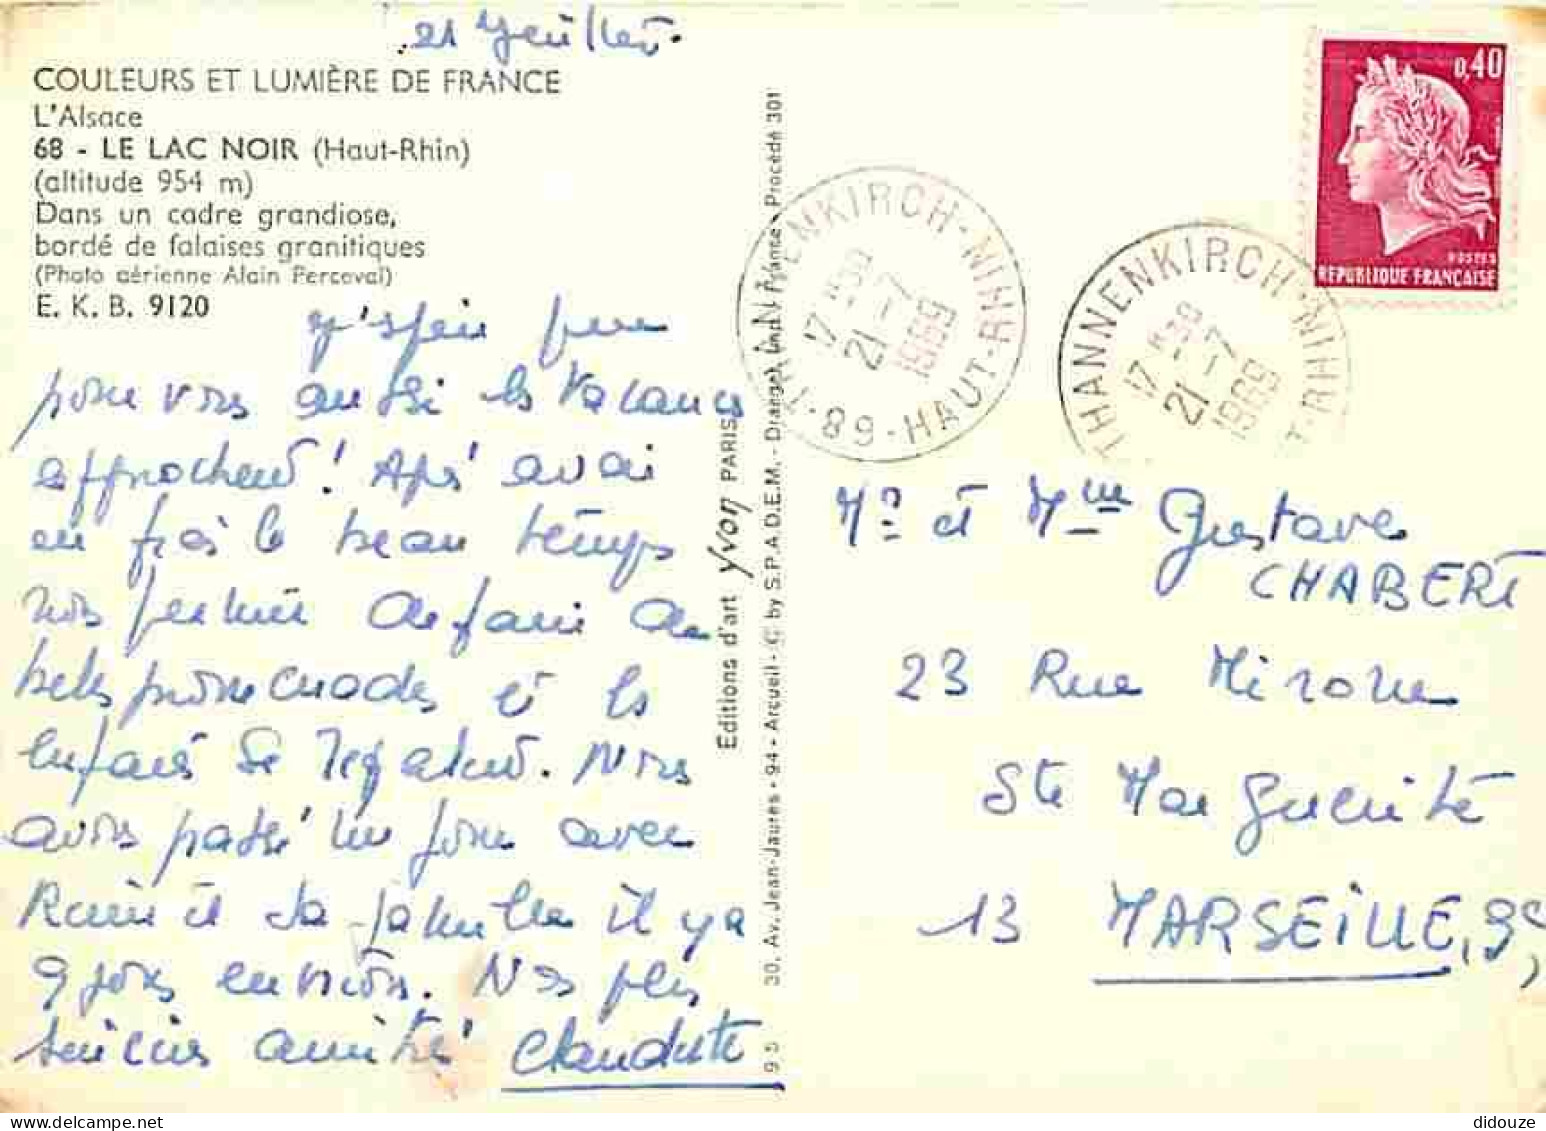 21 Juillet.
COULEURS ET LUMIÈRE DE FRANCE
L'Alsace
68 - LE LAC NOIR (Haut-Rhin)
(altitude 954 m)
Dans un cadre grandiose,
bordé de falaises granitiques
(Photo aérienne Alain Perceval)
E. K. B. 9120
J'espère que
pour vous aussi les Vacances
approchent! Après avoir
eu froid le beau temps
nous permet de faire de
belles promenades et les
enfants se régalent. Nous
avons passé un jour avec
et sa famille il y a
9 jours environ. Nos plus
sincères amitiés Claudette
Editions d'art Yvon PARIS
30, Av. Jean-Jaurès - 94 - Arcueil - C by S.P.A.D.E.M. - Dragel, Imp. France - Procédé 301
THANNENKIRCH - NIHR-TUAH - 68
17 H 30
21 -7
1969
THANNENKIRCH - NIHR-T
17 H 30
21 -7
1969
0,40
POSTES
REPUBLIQUE FRANÇAISE
Mr et Mme Gustave
CHABERT
23 Rue Mirone
Ste Marguerite
13 MARSEILLE, 9e
didouze